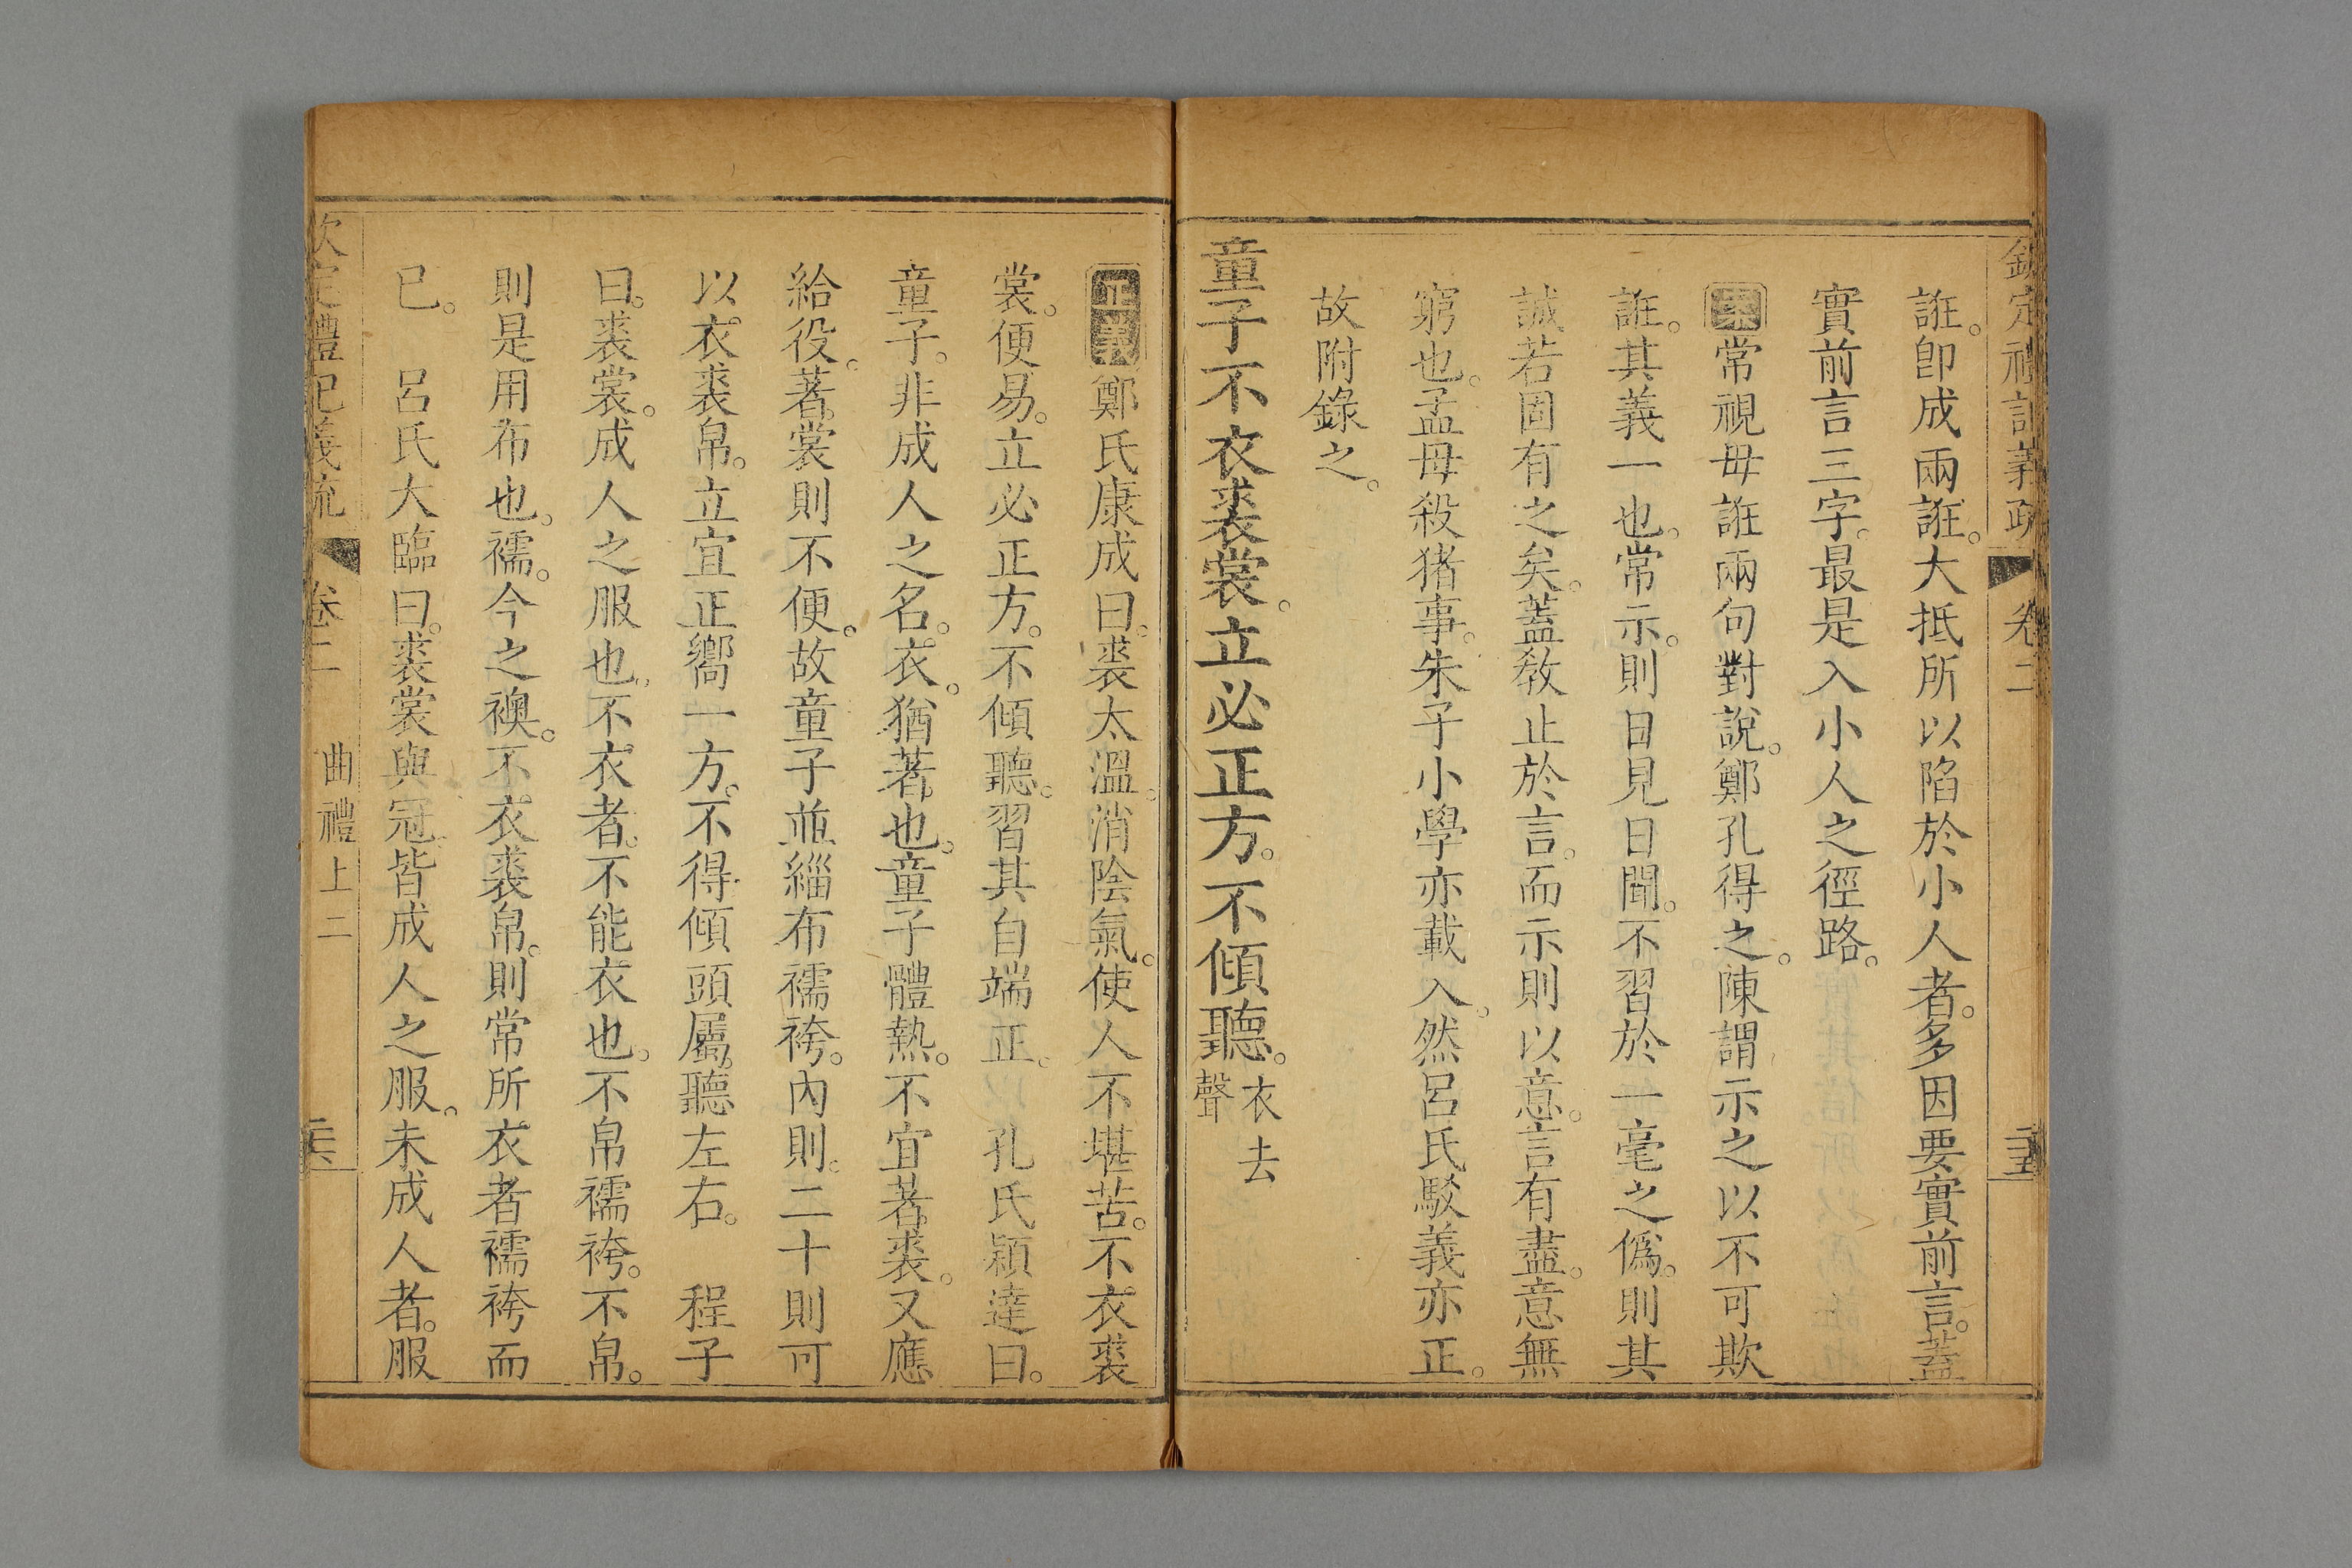 欽定禮記義疏 卷二 二十五
誑。卽成兩誑。大抵所以陷於小人者。多因要實前言。蓋
實前言三字。最是入小人之徑路。
案常視毋誑兩句對說。鄭孔得之。陳謂示之以不可欺
誑。其義一也。常示。則日見日聞。不習於一毫之僞。則其
誠若固有之矣。蓋敎止於言。而示則以意。言有盡。意無
窮也。孟母殺猪事。朱子小學亦載入。然呂氏駁義亦正。
故附錄之。
童子不衣裘裳。立必正方。不傾聽。衣去聲
正義鄭氏康成曰。裘太溫。消陰氣。使人不堪苦。不衣裘
裳。便易。立必正方。不傾聽。習其自端正。 孔氏穎達曰。
童子。非成人之名。衣。猶著也。童子體熱。不宜著裘。又應
給役。著裳則不便。故童子並緇布襦袴。內則。二十則可
以衣裘帛。立宜正嚮一方。不得傾頭屬聽左右。 程子
曰。裘裳。成人之服也。不衣者。不能衣也。不帛襦袴。不帛。
則是用布也。襦。今之襖。不衣裘帛。則常所衣者襦袴而
已。 呂氏大臨曰。裘裳與冠皆成人之服。未成人者。服
欽定禮記義疏 卷二 曲禮上二 二十六